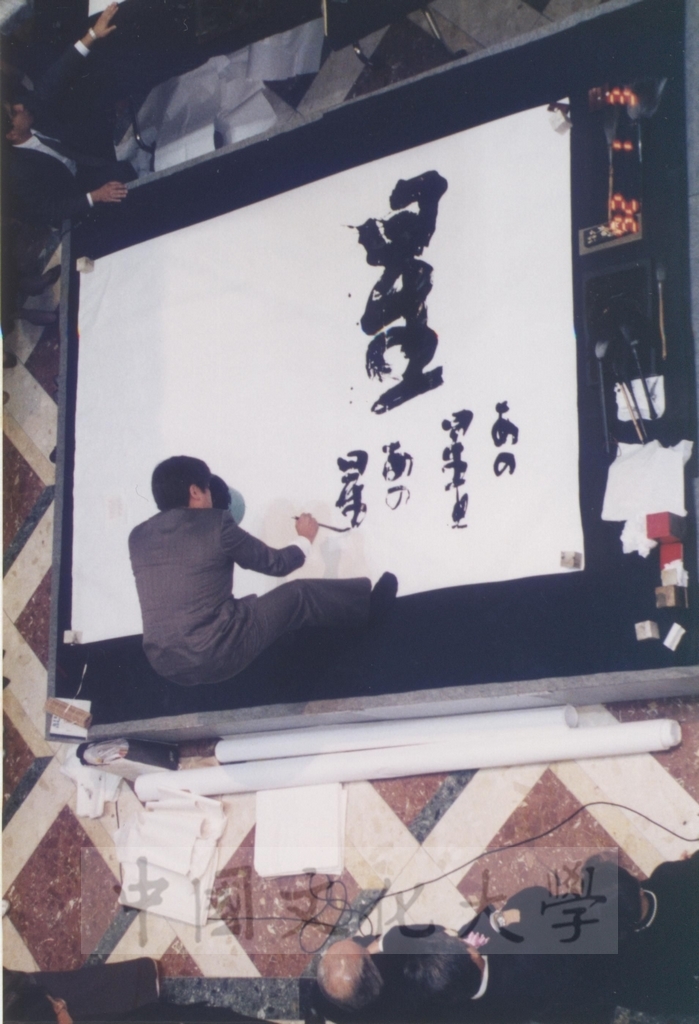 星
あの
星
あの
星
中國文化大學